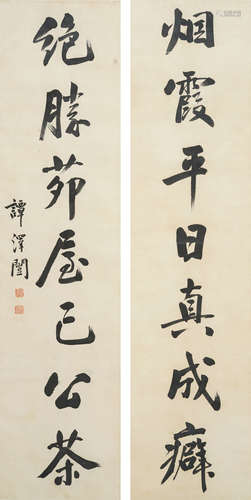 烟霞平日真成癖
絶勝茆屋已公茶
譚澤闓